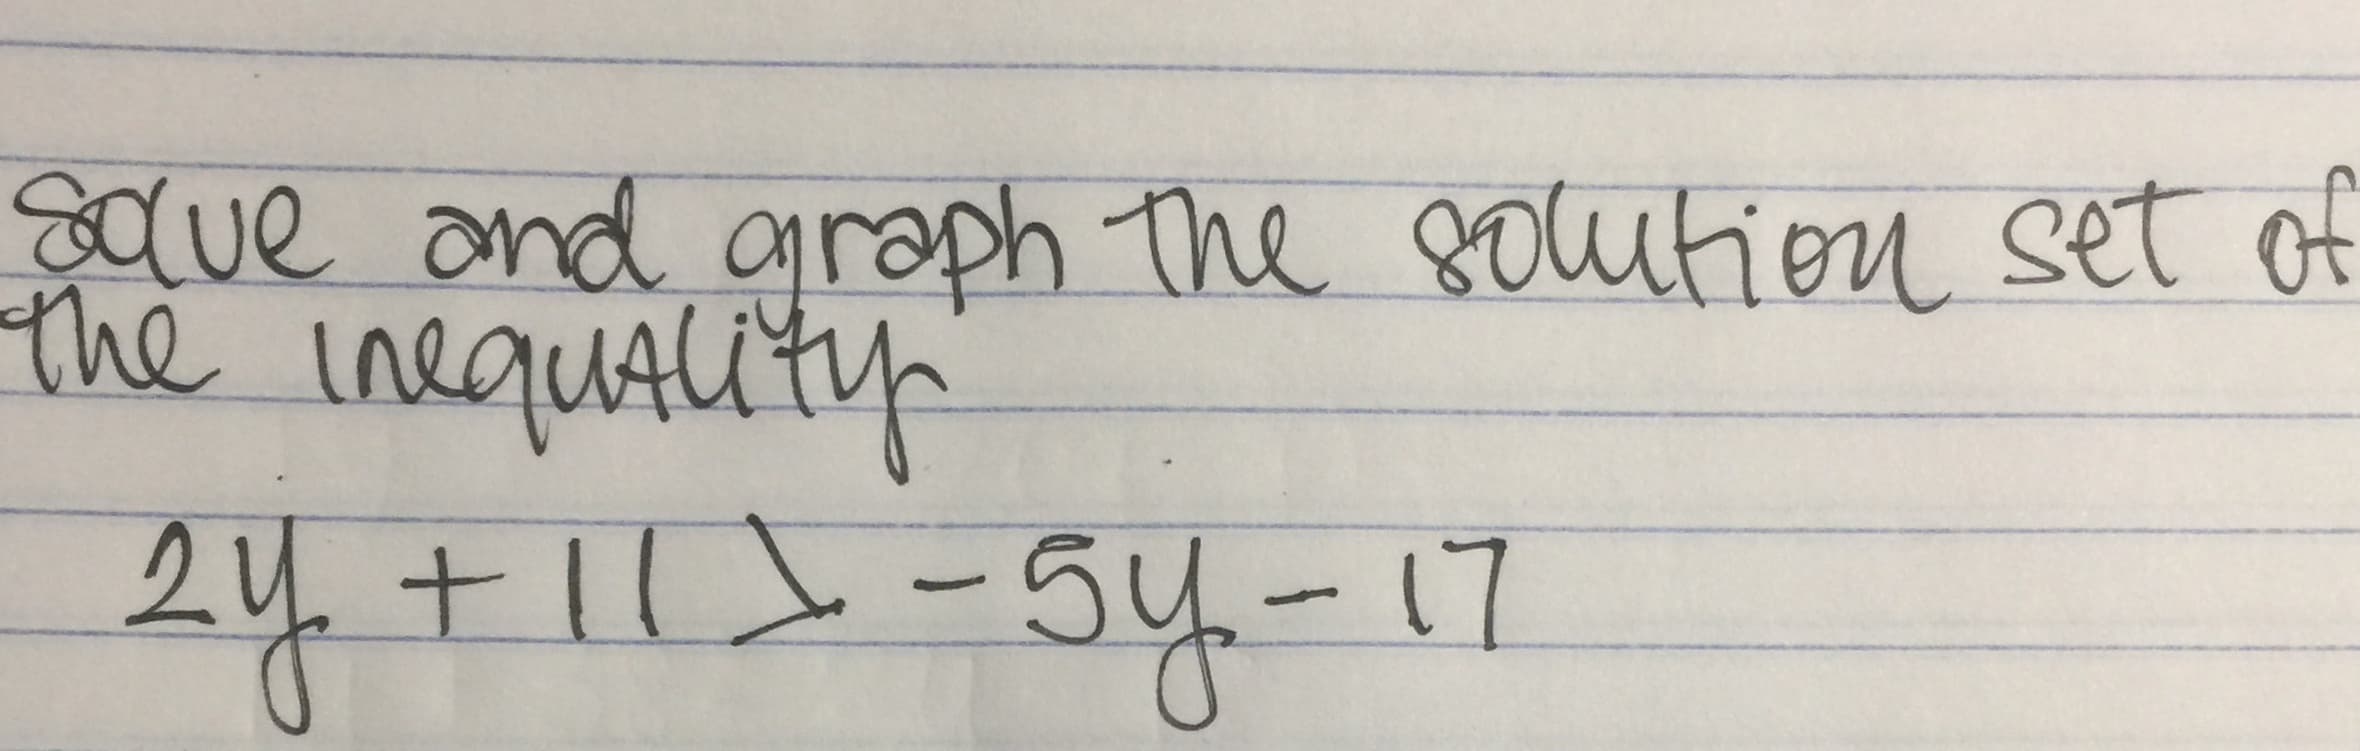 Solve and graph the solution set of
the inequality
2y + 11 > -5y - 17